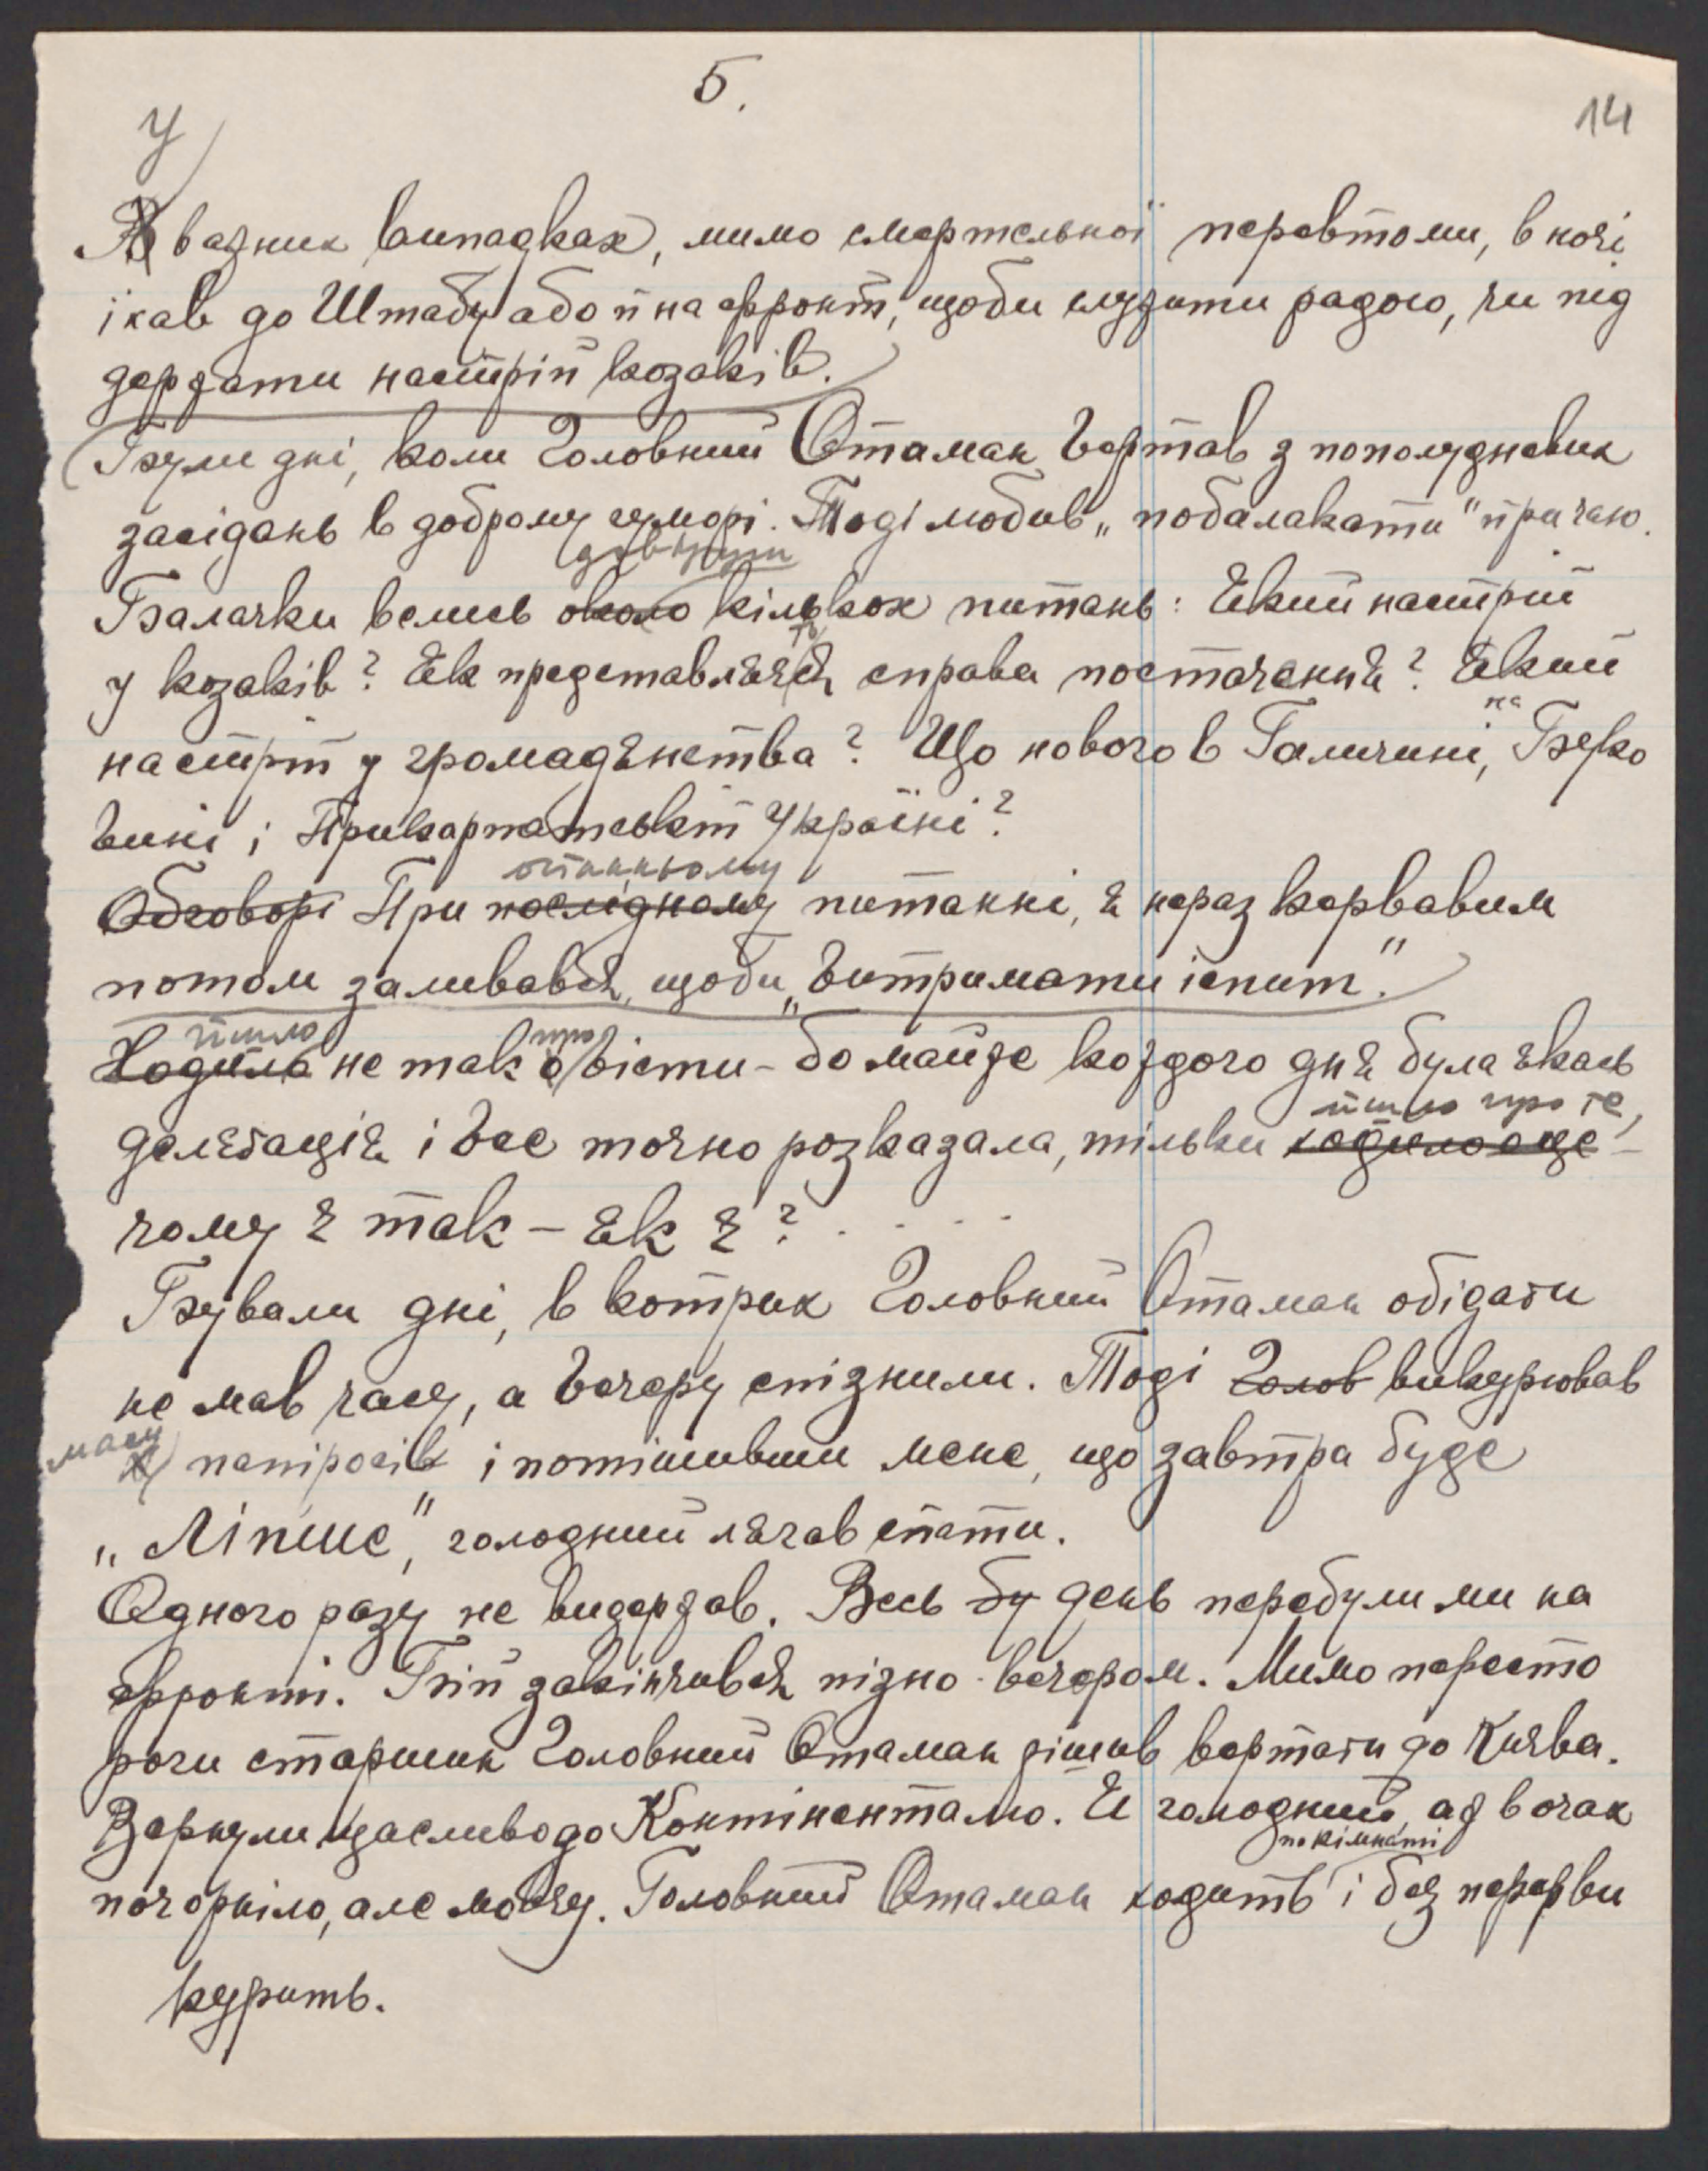 5.
14
У
В важних випадках, мимо смертельної перевтоми, в ночі
їхав до Штабу або й на фронт, щоби служити радою, чи під
держати настрій козаків.
Були дні, коли Головний Отаман вертав з пополудневих
засідань в доброму гуморі. Тоді любив „побалакати" при чаю.
довкруги
Балачки велись около кількох питань: Який настрій
у козаків? Як представляєть ся справа постачання? Який
на
настрій у громадянства? Що нового в Галичині, Буко
вині і Прикарпатській Україні?
останньому
Обговорі При послідному питанні, я нераз кервавим
потом заливався, щоби „витримати іспит."
йшло про
Ходило не так о вісти - бо майже кождого дня була якась
йшло про те,
делєґація і все точно розказала, тільки ходило о це -
чому є так - як є? . . . .
Бували дні, в котрих Головний Отаман обідати
не мав часу, а вечеру спізнили. Тоді Голов викурював
масу
папіросів і потішивши мене, що завтра буде
„Ліпше", голодний лягав спати.
Одного разу не видержав. Весь бу день перебули ми на
фронті. Бій закінчився пізно вечером. Мимо пересто
роги старшин Головний Отаман рішив вертати до Києва.
Вернули щасливо до Континенталю. Я голодний, аж в очах
по кімнаті
почорніло, але мовчу. Головний Отаман ходить і без перерви
курить.